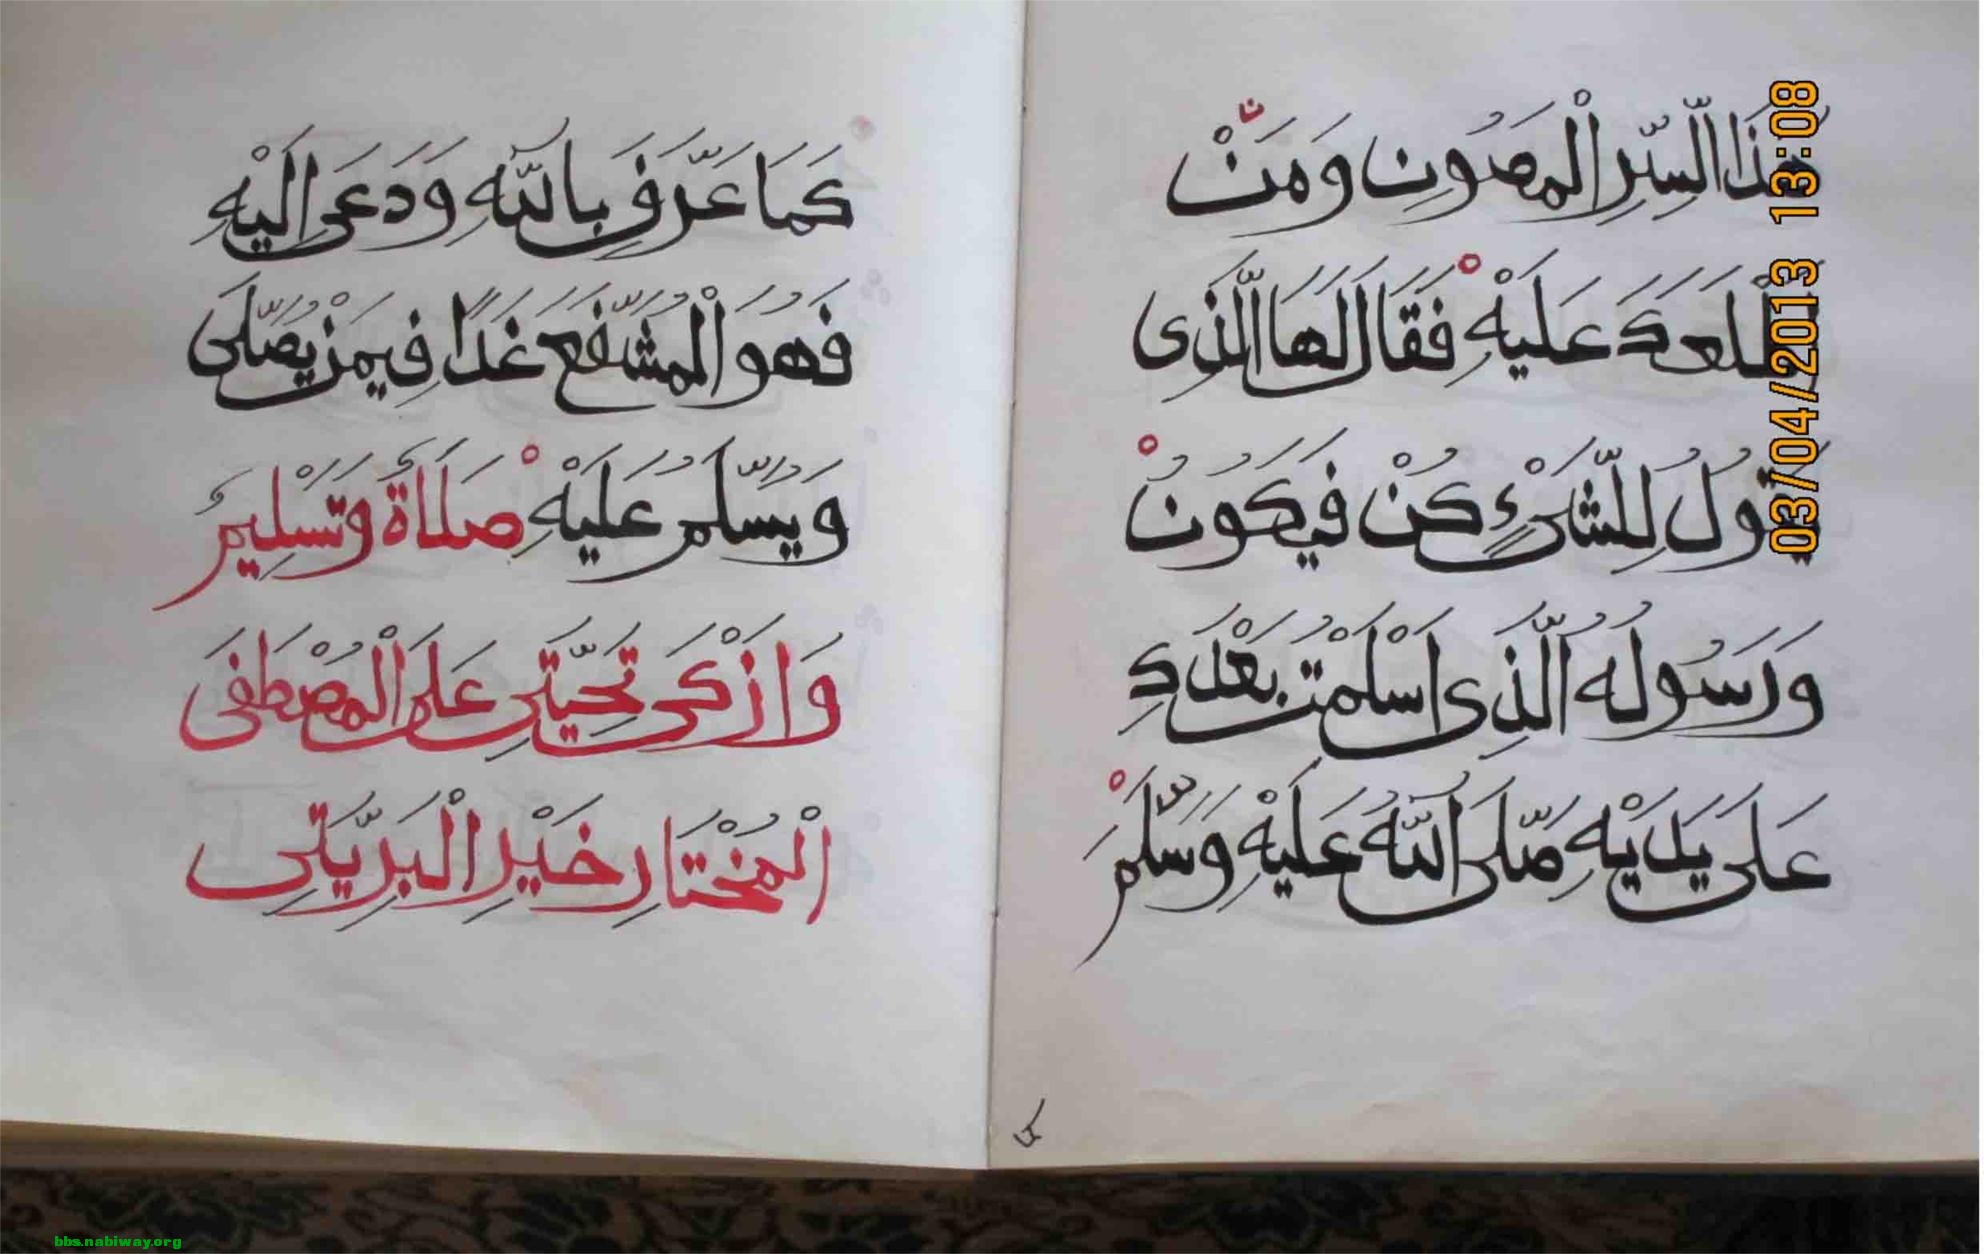 هَذَا السِّرِّ الْمَصُونِ وَمَنْ
عَلَيْهِ فَقَالَ لَهَا الَّذِى
يَقُولُ لِلشَّىْءٍ كُنْ فَيَكُونُ
وَرَسُولُهُ الَّذِى اَسْلَمْتُ بَعْدَكِ
عَلَى يَدَيْهِ صَلَّى اللّٰهُ عَلَيْهِ وَسَلَّمَ
كَمَا عَرَّفَ بِاللّٰهِ وَدَعَى اِلَيْهِ
فَهُوَ الْمُشَفَّعُ غَدًا فِيمَنْ يُصَلِّى
وَيُسَلِّمُ عَلَيْهِ صَلَاةٌ وَتَسْلِيمٌ
وَاَزْكَى تَحِيَّتِى عَلَى الْمُصْطَفَى
الْمُخْتَارِ خَيْرِ الْبَرِيَّتِى
03/04/2013 13:08
bbs.nabiway.org